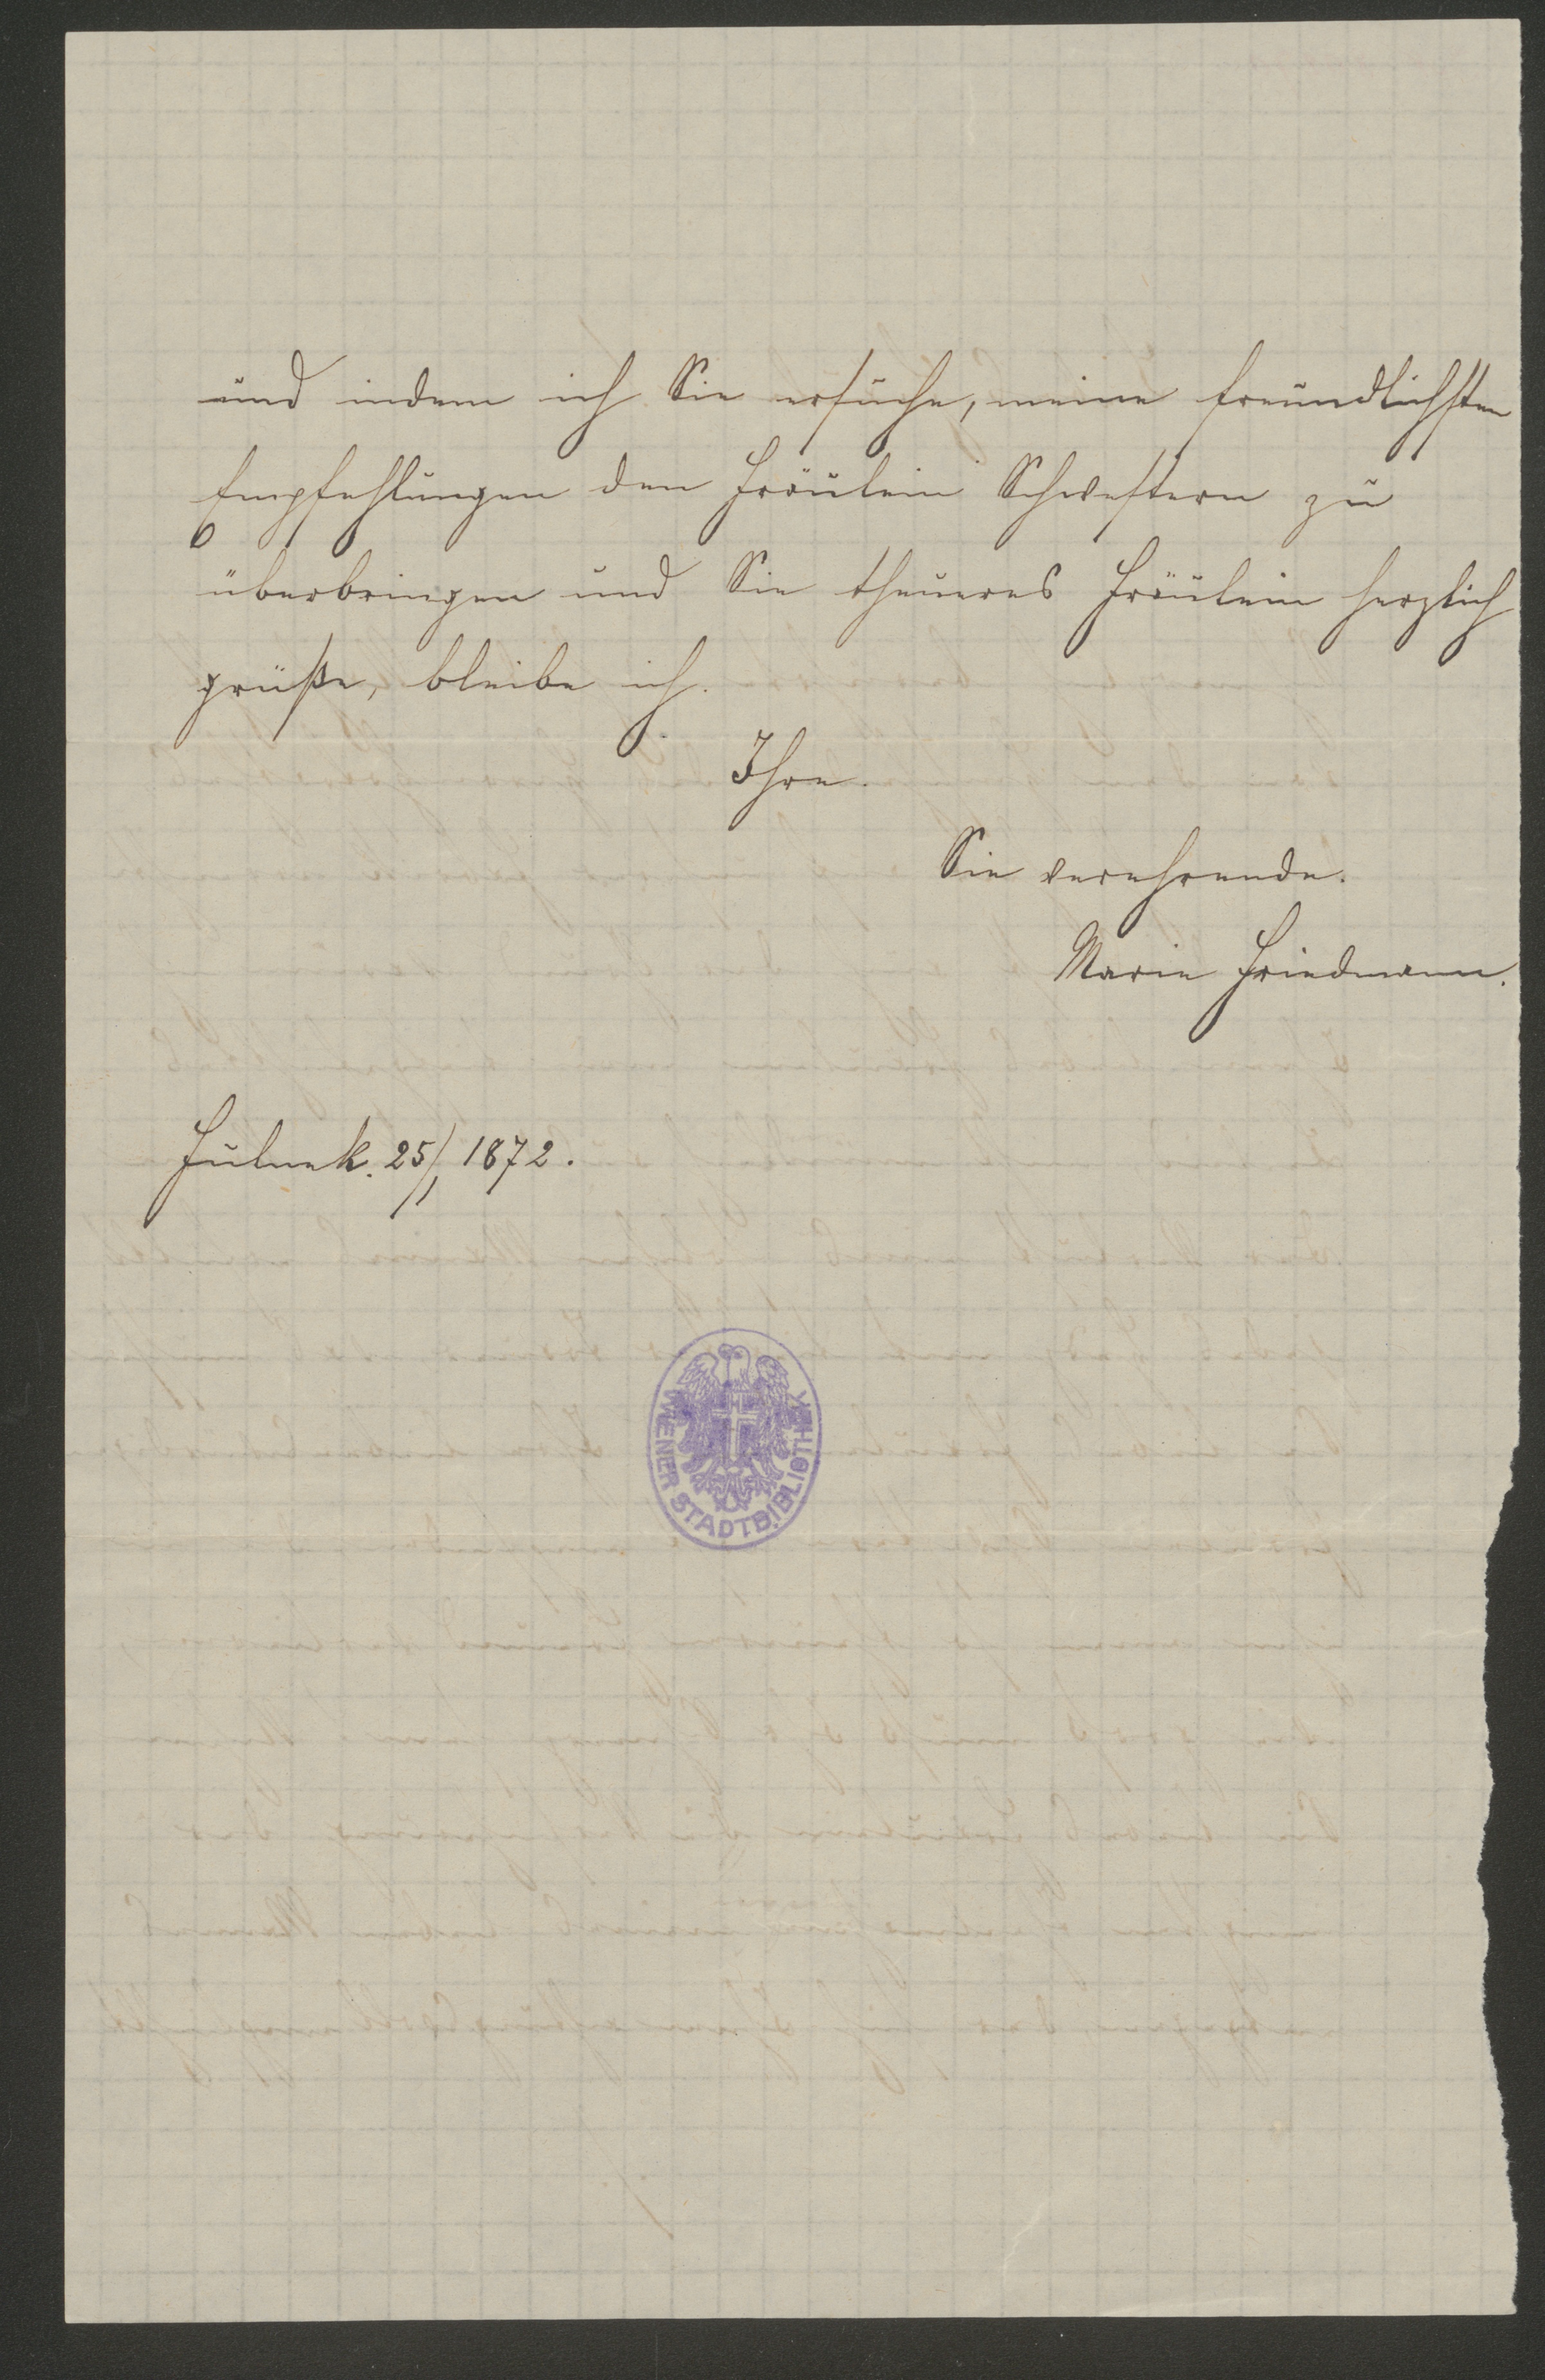 und indem ich Sie ersuche, meine freundlichsten
Empfehlungen den Fräulein Schwestern zu
überbringen und Sie theueres Fräulein herzlich
grüße, bleibe ich.
Ihre.
Sie verehrende.
Marie Friedmann.
Fulnek. 25/1 1872.
WIENER STADTBIBLIOTHEK